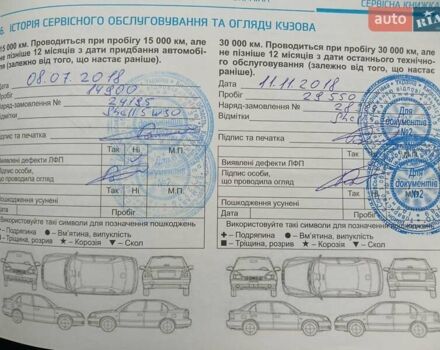 СЕРВІСНА КНИЖКА
RIA
6 ІСТОРІЯ СЕРВІСНОГО ОБСЛУГОВУВАННЯ ТА ОГЛЯДУ КУЗОВА
15 000 км. Проводиться при пробігу 15 000 км, але
не пізніше 12 місяців з дати придбання автомобі-
ля (залежно від того, що настає раніше).
Дата 08.07.2018
Пробіг 14900
Наряд-замовлення № 24195
Відмітки Shell 5w30
Підпис та печатка
Так Ні М.П.
Виявлені дефекти ЛФП
Підпис особи,
що проводила огляд
Пошкодження усунені
Дата Пробіг
Використовуйте такі символи для позначення пошкоджень:
+ – Подряпина ● – Вм'ятина, випуклість
■ – Тріщина, розрив ★ – Корозія ▼ – Скол
30 000 км. Проводиться при пробігу 30 000 км, але
не пізніше 12 місяців з дати останнього технічно-
го обслуговування (залежно від того, що настає
раніше).
Дата 11.11.2018
Пробіг 29550
Наряд-замовлення №
Відмітки Shell
Підпис та печатка
Для
документів
№2
Так Ні М.П.
Виявлені дефекти ЛФП
Підпис особи,
що проводила огляд
Для
документів
№2
Пошкодження усунені
Дата Пробіг
Використовуйте такі символи для позначення пошкоджень:
+ – Подряпина ● – Вм'ятина, випуклість
■ – Тріщина, розрив ★ – Корозія ▼ – Скол